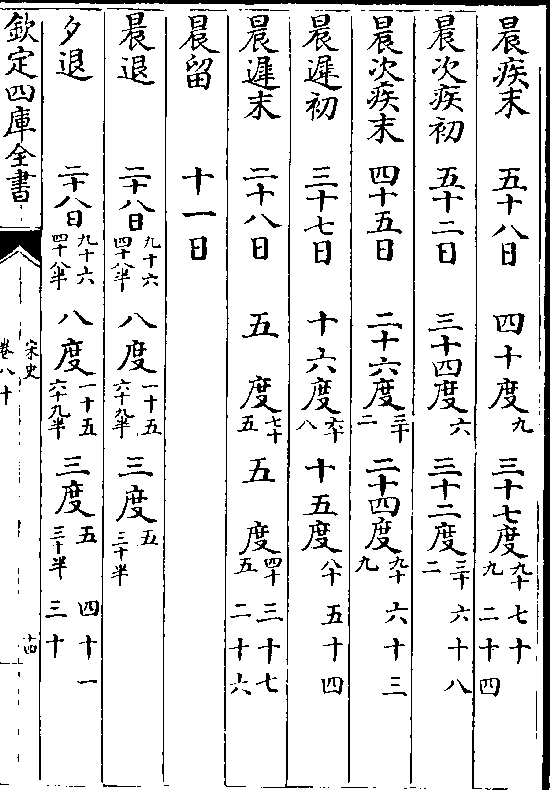 晨疾末 五十八日 四十度九 三十七度九十九 七十二十四
晨次疾初 五十二日 三十四度六 三十二度三十二 六十八
晨次疾末 四十五日 二十六度三十二 二十四度九十九 六十三
晨遲初 三十七日 十六度六十八 十五度八十 五十四
晨遲末 二十八日 五度七十五 五度四十五 三十七二十六
晨留 十一日
晨退 二十八日九十六四十八半 八度一十五六十九半 三度五三十半
夕退 二十八日九十六四十八半 八度一十五六十九半 三度五三十半 四十一三十
欽定四庫全書 宋史 卷八十 十四